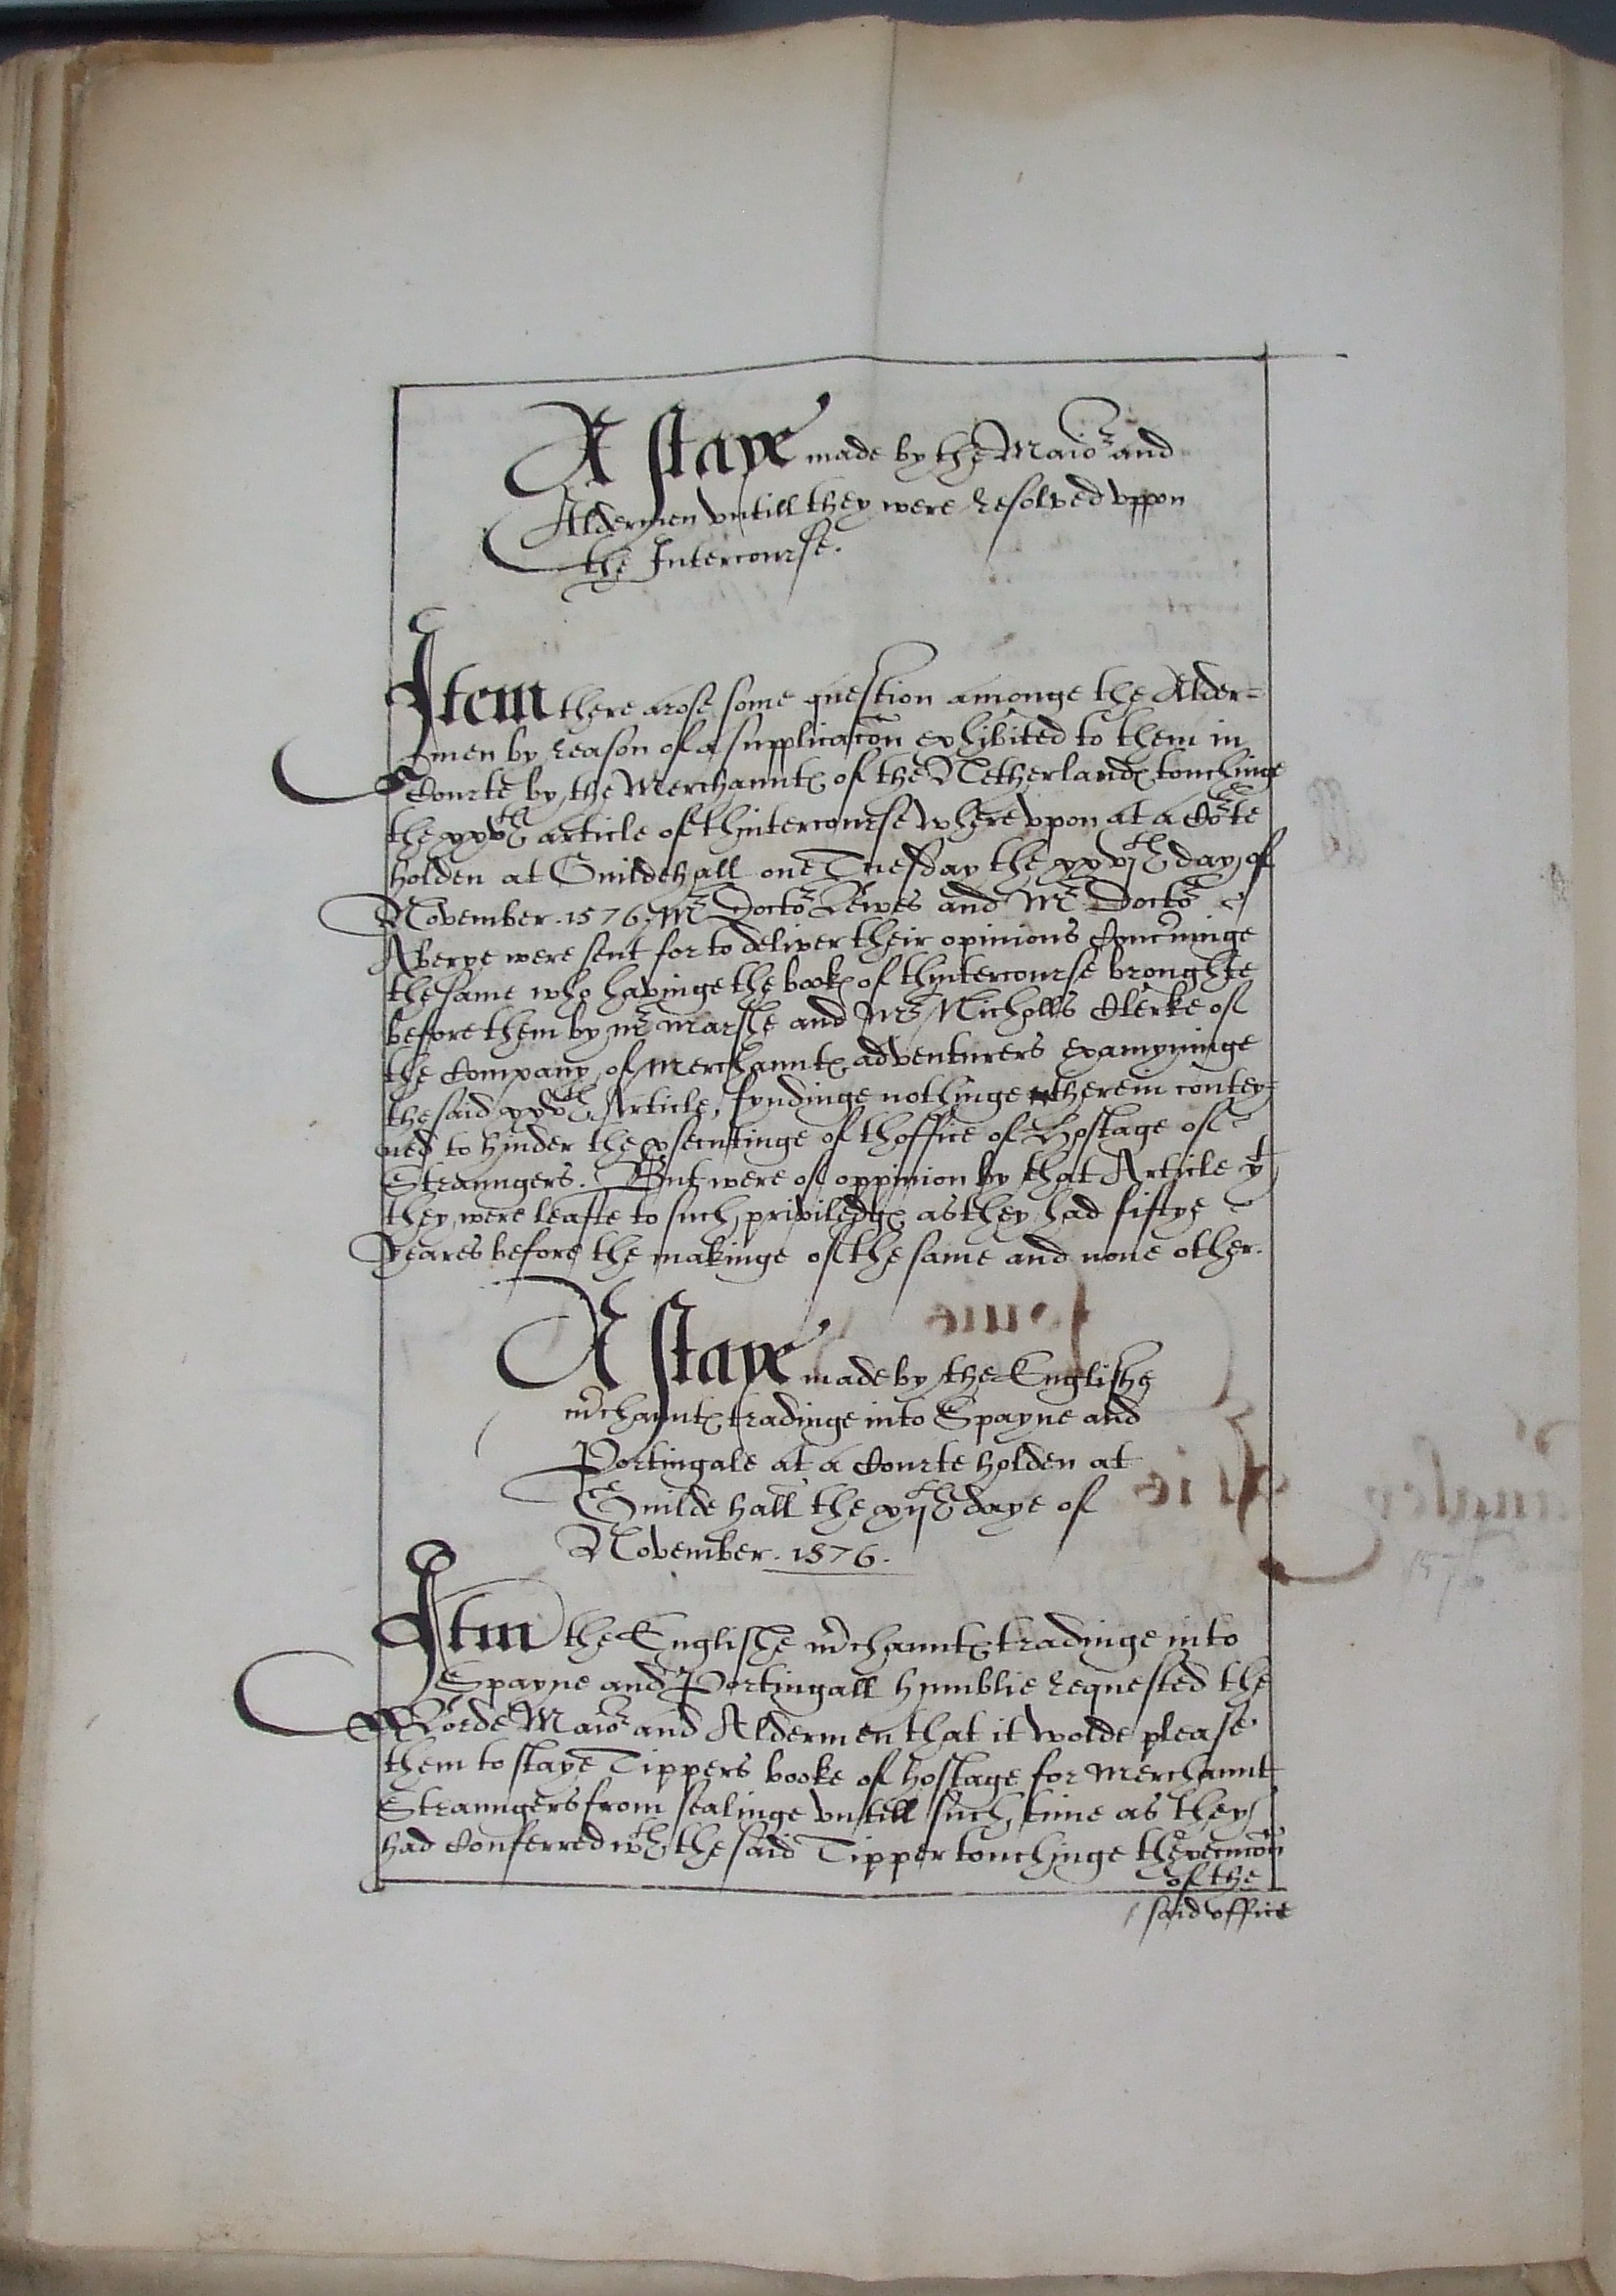 A staye made by the Maior and
Aldermen vntill they were resolved vppon
the Intercourse.
Item there arose some question amonge the Alder=
men by reason of a supplicacon exhibited to them in
Courte by the Merchauntes of the Netherlandes touchinge
the xxvth article of thintercourse wherevpon at a Corte
holden at Guildehall one Tuesday the xxvjth day of
November. 1576. Mr Doctor Lewes and Mr Doctor
Awberye were sent for to deliver their opinions Conc'ninge
the same who havinge the bookes of thintercourse broughte
before them by mr marshe and Mr Nicholls Clerke of
the Company of Merchauntes adventurers examyninge
the said xxvth Article, fyndinge nothinge therein contey=
ned to hinder the executinge of thoffice of Hostage of
Straungers. But were of oppinion by that Article yt
they were leafte to such priviledges as they had fiftye
yeares before the makinge of the same and none other.
A staye made by the Englishe
m'chauntes tradinge into Spayne and
Portingale at a Courte holden at
Guilde hall the xijth daye of
November. 1576.
Itm the Englishe m'chauntes tradinge into
Spayne and Portingall humblie requested the
Lorde Maior and Aldermen that it wolde please
them to staye Tippers booke of hostage for Merchaunt
Straungers from sealinge vntill such time as they
had Conferred wth the said Tipper touchinge thexecucon
of the
said office